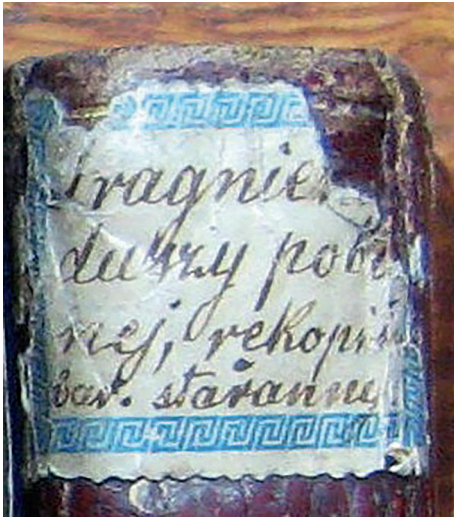 dragnie
duszy pobo
nej, rekopis
bar. stařanny